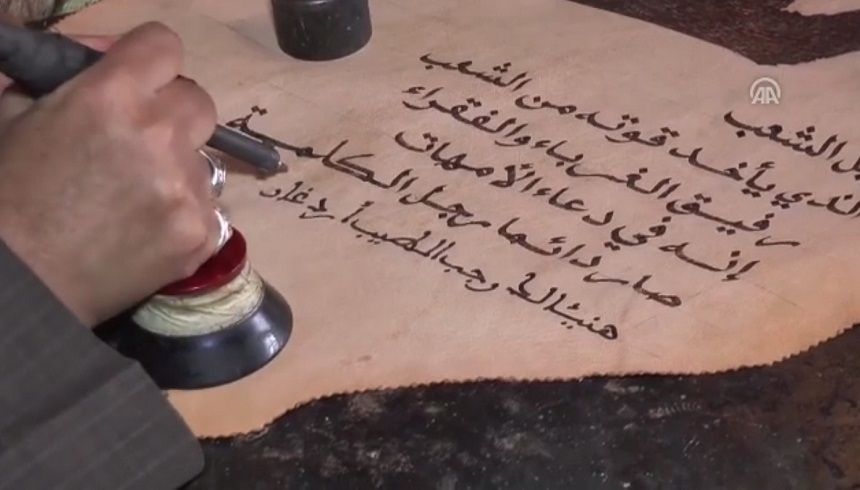 ل الشعب
الذي يأخذ قوته من الشعب
رفيق الغرباء والفقراء
إنه في دعاء الأمهات
صار دائما رجل الكلمة
هنيئا لك رجب الطيب أردغان
AA